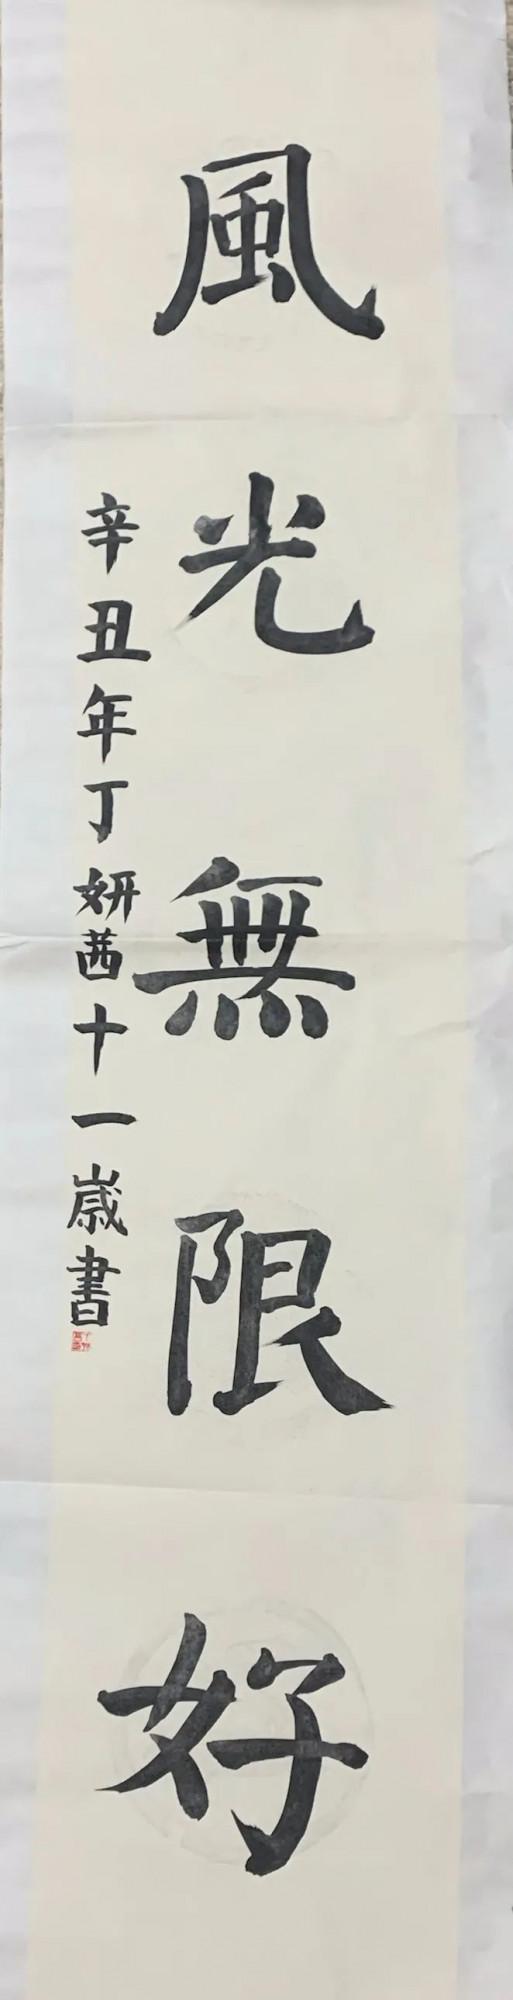 風光無限好
辛丑年丁妍茜十一歲書